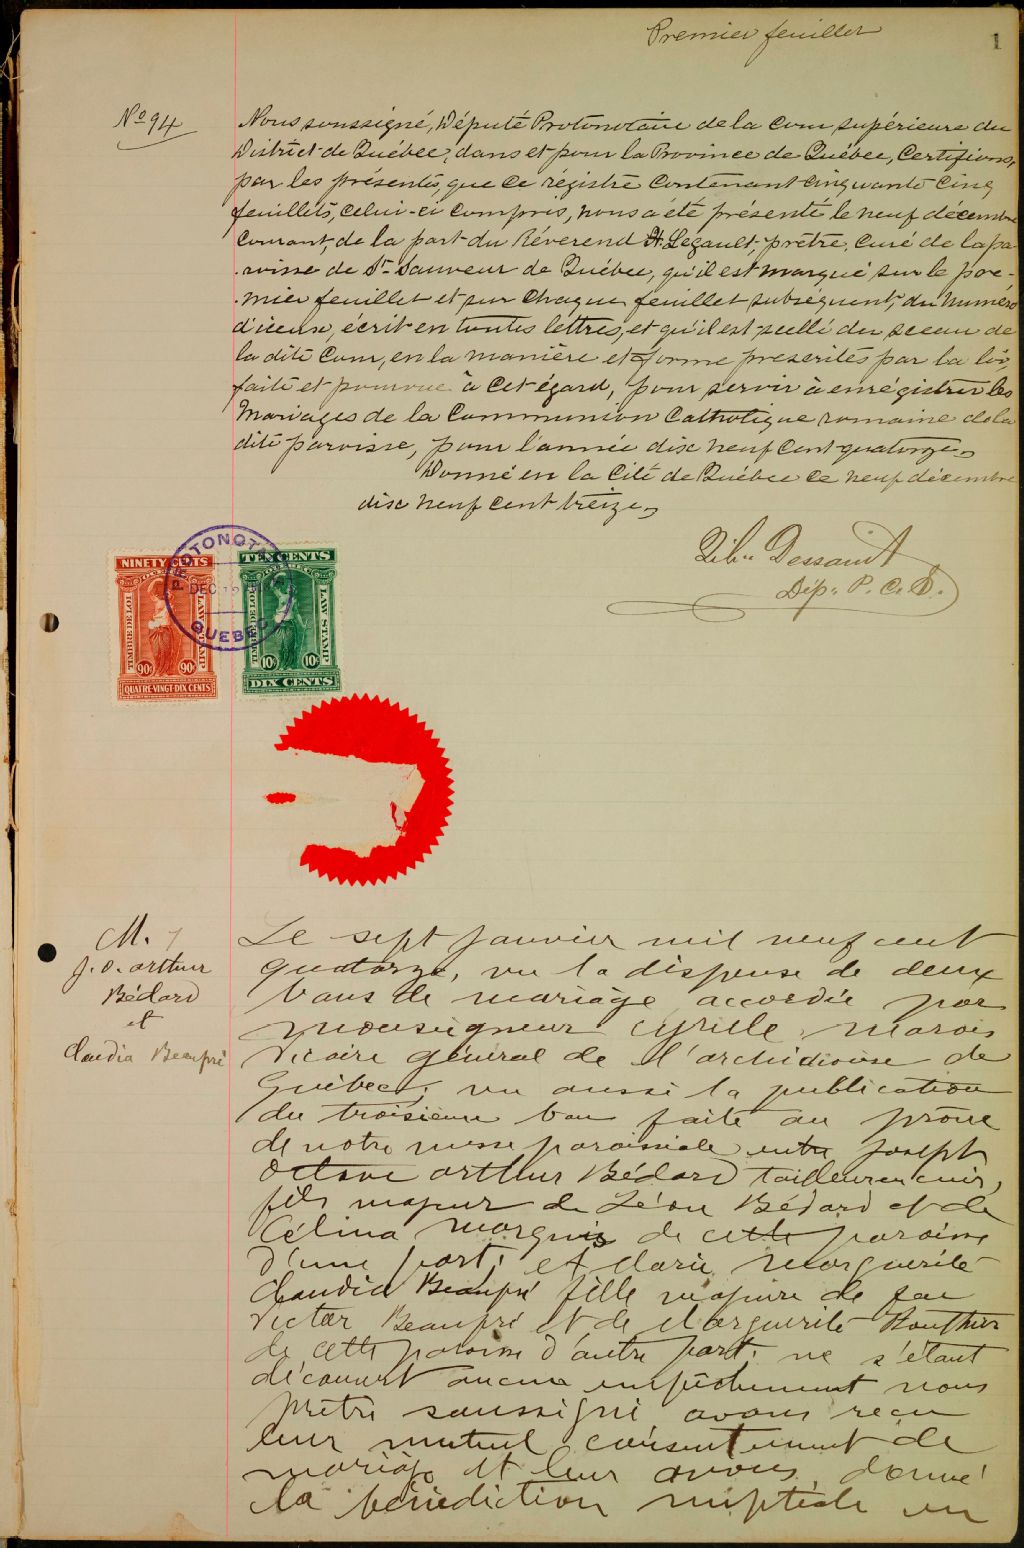 Premier feuillet
1
No 94
Nous soussigné, Député Protonotaire de la Cour supérieure du
District de Québec, dans et pour la Province de Québec, Certifions,
par les présentes, que ce régistre contenant cinquante cinq
feuillets, celui-ci compris, nous a été présenté le neuf décembre
courant, de la part du Révérend H. Legault, prêtre, curé de la pa-
-roisse de St Sauveur de Québec, qu'il est marqué sur le pre-
-mier feuillet et sur chaque feuillet subséquent, du numéro
d'iceux, écrit en toutes lettres, et qu'il est scellé du sceau de
la dite Cour, en la manière et forme prescrites par la loi,
faite et pourvue à cet égard, pour servir à enrégistrer les
Mariages de la Communion Catholique romaine de la
dite paroisse, pour l'année dix neuf cent quatorze.
Donné en la Cité de Québec ce neuf décembre
dix neuf cent treize.
Dessaint
Dép. P. C. S.
PROTONOTA
DEC 12
QUEBEC
NINETY CENTS
TIMBRE DE LOI
LAW STAMP
90c 90c
QUATRE-VINGT-DIX CENTS
TEN CENTS
TIMBRE DE LOI
LAW STAMP
10c 10c
DIX CENTS
M. 1
J. O. Arthur
Bédard
et
Claudia Beaupré
Le sept janvier mil neuf cent
quatorze, vu la dispense de deux
bans de mariage accordée par
Monseigneur Cyrille Marois
Vicaire général de l'archidiocèse de
Québec; vu aussi la publication
du troisième ban faite au prône
de notre messe paroissiale entre Joseph
Octave Arthur Bédard tailleur en cuir,
fils majeur de Léon Bédard et de
Célina Marquis de cette paroisse
d'une part; et Marie Marguerite
Claudia Beaupré fille majeure de feu
Victor Beaupré et de Marguerite Bouthier
de cette paroisse d'autre part; ne s'étant
découvert aucun empêchement nous
prêtre soussigné avons reçu
leur mutuel consentement de
mariage et leur avons donné
la bénédiction nuptiale en